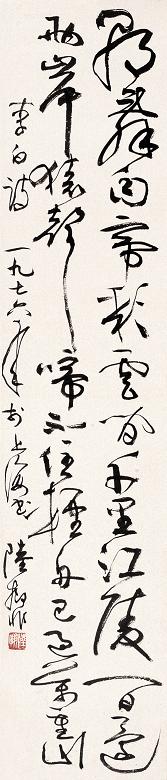 朝辞白帝彩云间千里江陵一日还
两岸猿声啼不住轻舟已过万重山
李白诗 一九七六年 于上海 陆抑非